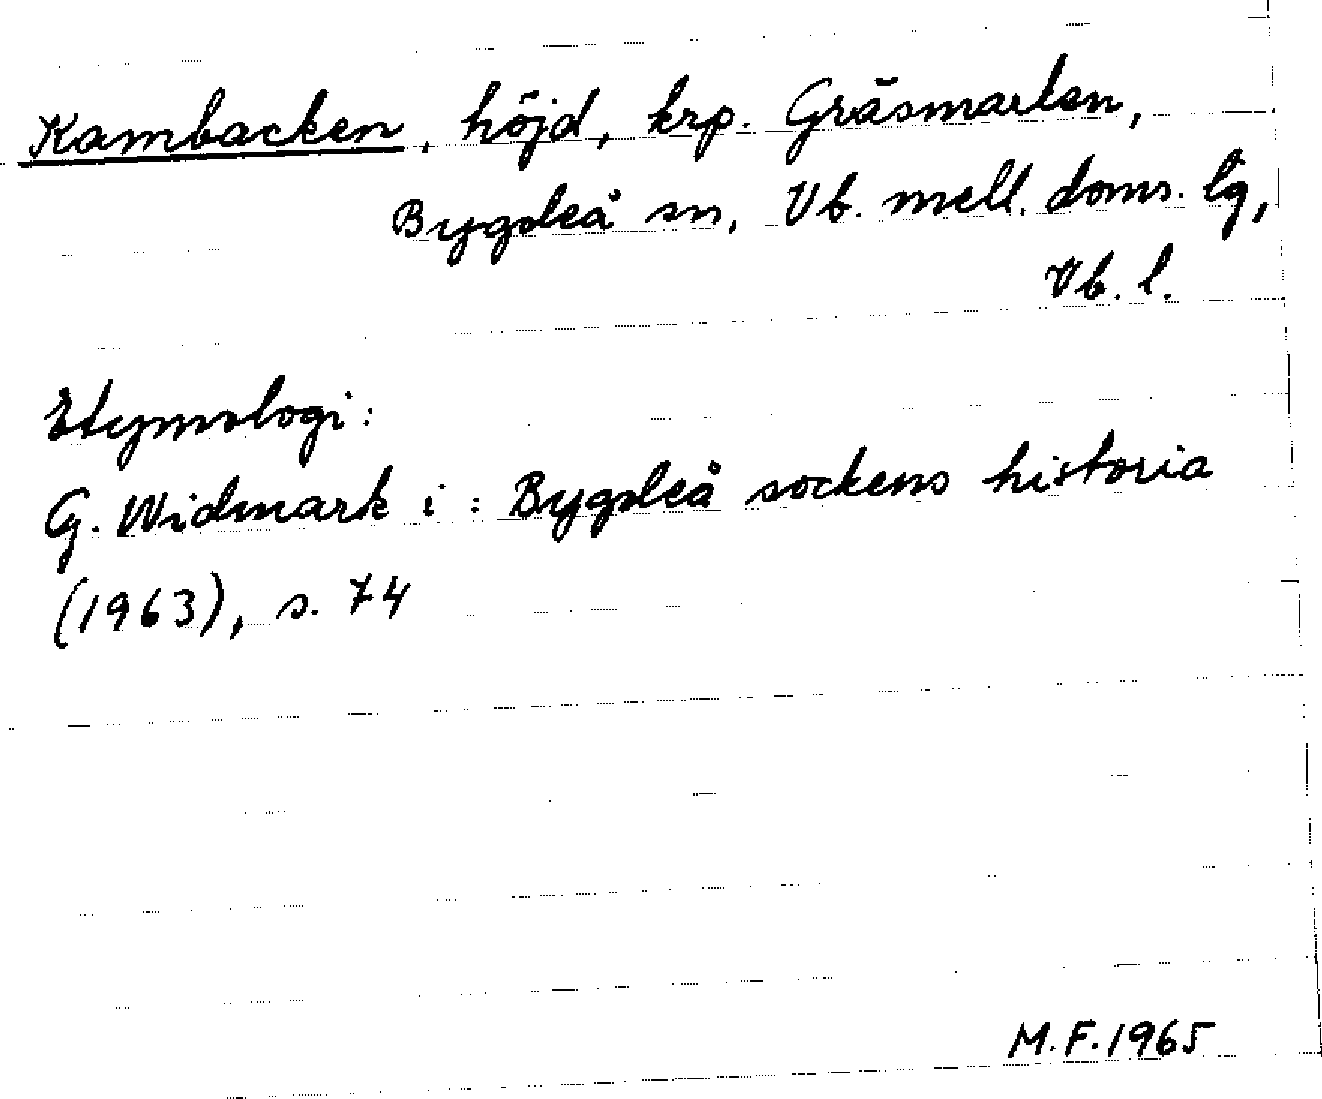 Kambacken, höjd, krp. Gräsmarken,
Bygdeå sn, Vb. mell. doms. lg,
Vb. l.
Etymologi:
G. Widmark i: Bygdeå sockens historia
(1963), s. 74
M.F. 1965